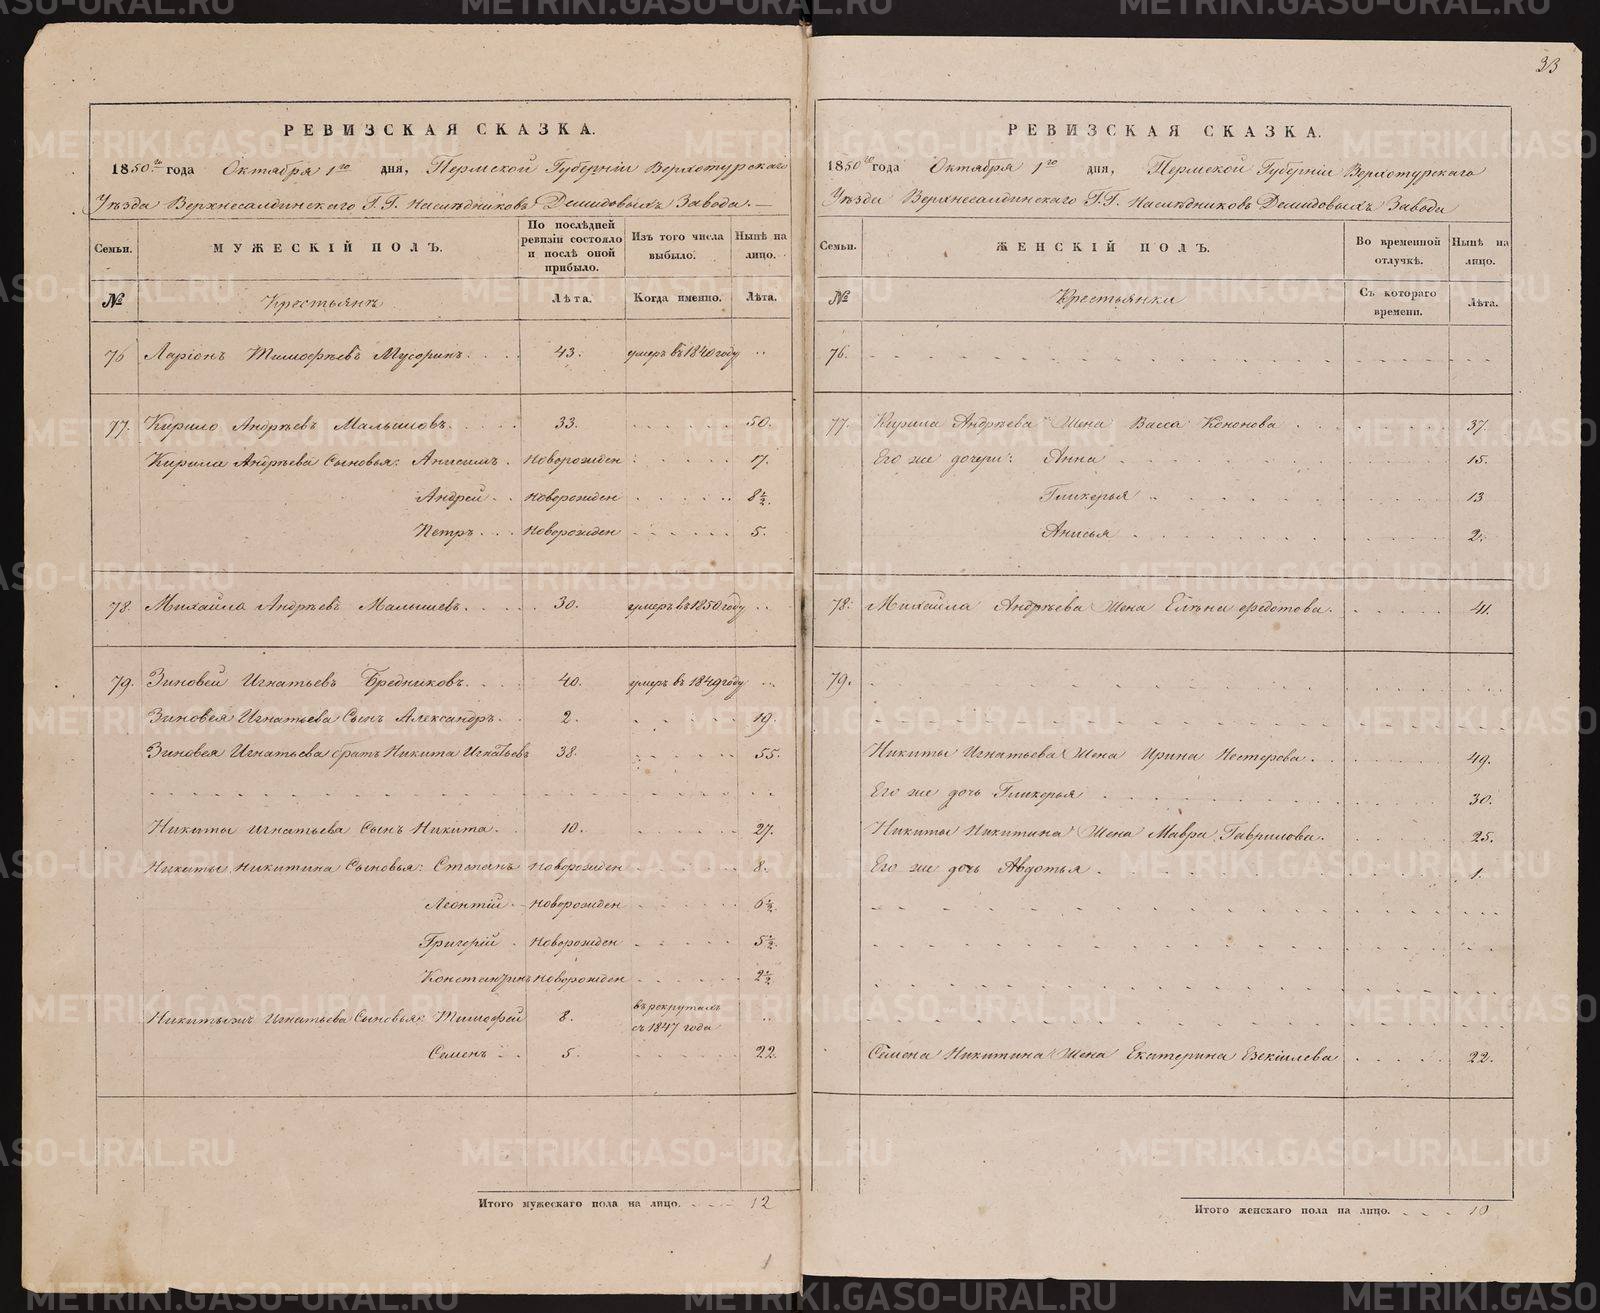 33
РЕВИЗСКАЯ СКАЗКА.
1850го года Октября 1го дня, Пермской Губерніи Верхотурскаго
Уѣзда Верхнесалдинскаго Г.Г. Наслѣдниковъ Демидовыхъ Завода.
Семьи. МУЖЕСКІЙ ПОЛЪ. По послѣдней ревизіи состояло и послѣ оной прибыло. Изъ того числа выбыло. Нынѣ на лицо.
№ Крестьянъ Лѣта. Когда именно. Лѣта.
76 Ларіонъ Тимофѣевъ Мусоринъ. 43. умеръ въ 1840 году
77. Кирило Андрѣевъ Малышовъ. 33. 50.
Кирила Андрѣева Сыновья: Анисимъ. новорожден 17.
Андрей новорожден 8½.
Петръ. новорожден 5.
78. Михайло Андрѣевъ Малышевъ. 30. умеръ въ 1850 году
79. Зиновей Игнатьевъ Бредниковъ. 40. умеръ въ 1849 году
Зиновея Игнатьева Сынъ Александръ. 2. 19.
Зиновея Игнатьева братъ Никита Игнатьевъ 38. 55.
Никиты Игнатьева Сынъ Никита. 10. 27.
Никиты Никитина Сыновья: Степанъ новорожден 8.
Леонтій новорожден 6½
Григорій новорожден 5½
Константинъ новорожден 2½
Никиты Игнатьева Сыновья: Тимофей 8. въ рекрутахъ съ 1847 года
Семенъ 5. 22.
Итого мужескаго пола на лицо. 12
РЕВИЗСКАЯ СКАЗКА.
1850го года Октября 1го дня, Пермской Губерніи Верхотурскаго
Уѣзда Верхнесалдинскаго Г.Г. Наслѣдниковъ Демидовыхъ Завода
Семьи. ЖЕНСКІЙ ПОЛЪ. Во временной отлучкѣ. Нынѣ на лицо.
№ Крестьянки Съ котораго времени. Лѣта.
76.
77. Кирила Андрѣева Жена Васса Кононова 37.
Его же дочери: Анна 15.
Гликерья 13
Анисья 2.
78. Михайла Андрѣева Жена Елѣна Федотова. 41.
79.
Никиты Игнатьева Жена Ирина Нестерова. 49.
Его же дочь Гликерья 30.
Никиты Никитина Жена Мавра Гаврилова. 25.
Его же дочь Авдотья 1.
Семена Никитина Жена Екатерина Езекіилева 22.
Итого женскаго пола на лицо. 10
METRIKI.GASO-URAL.RU